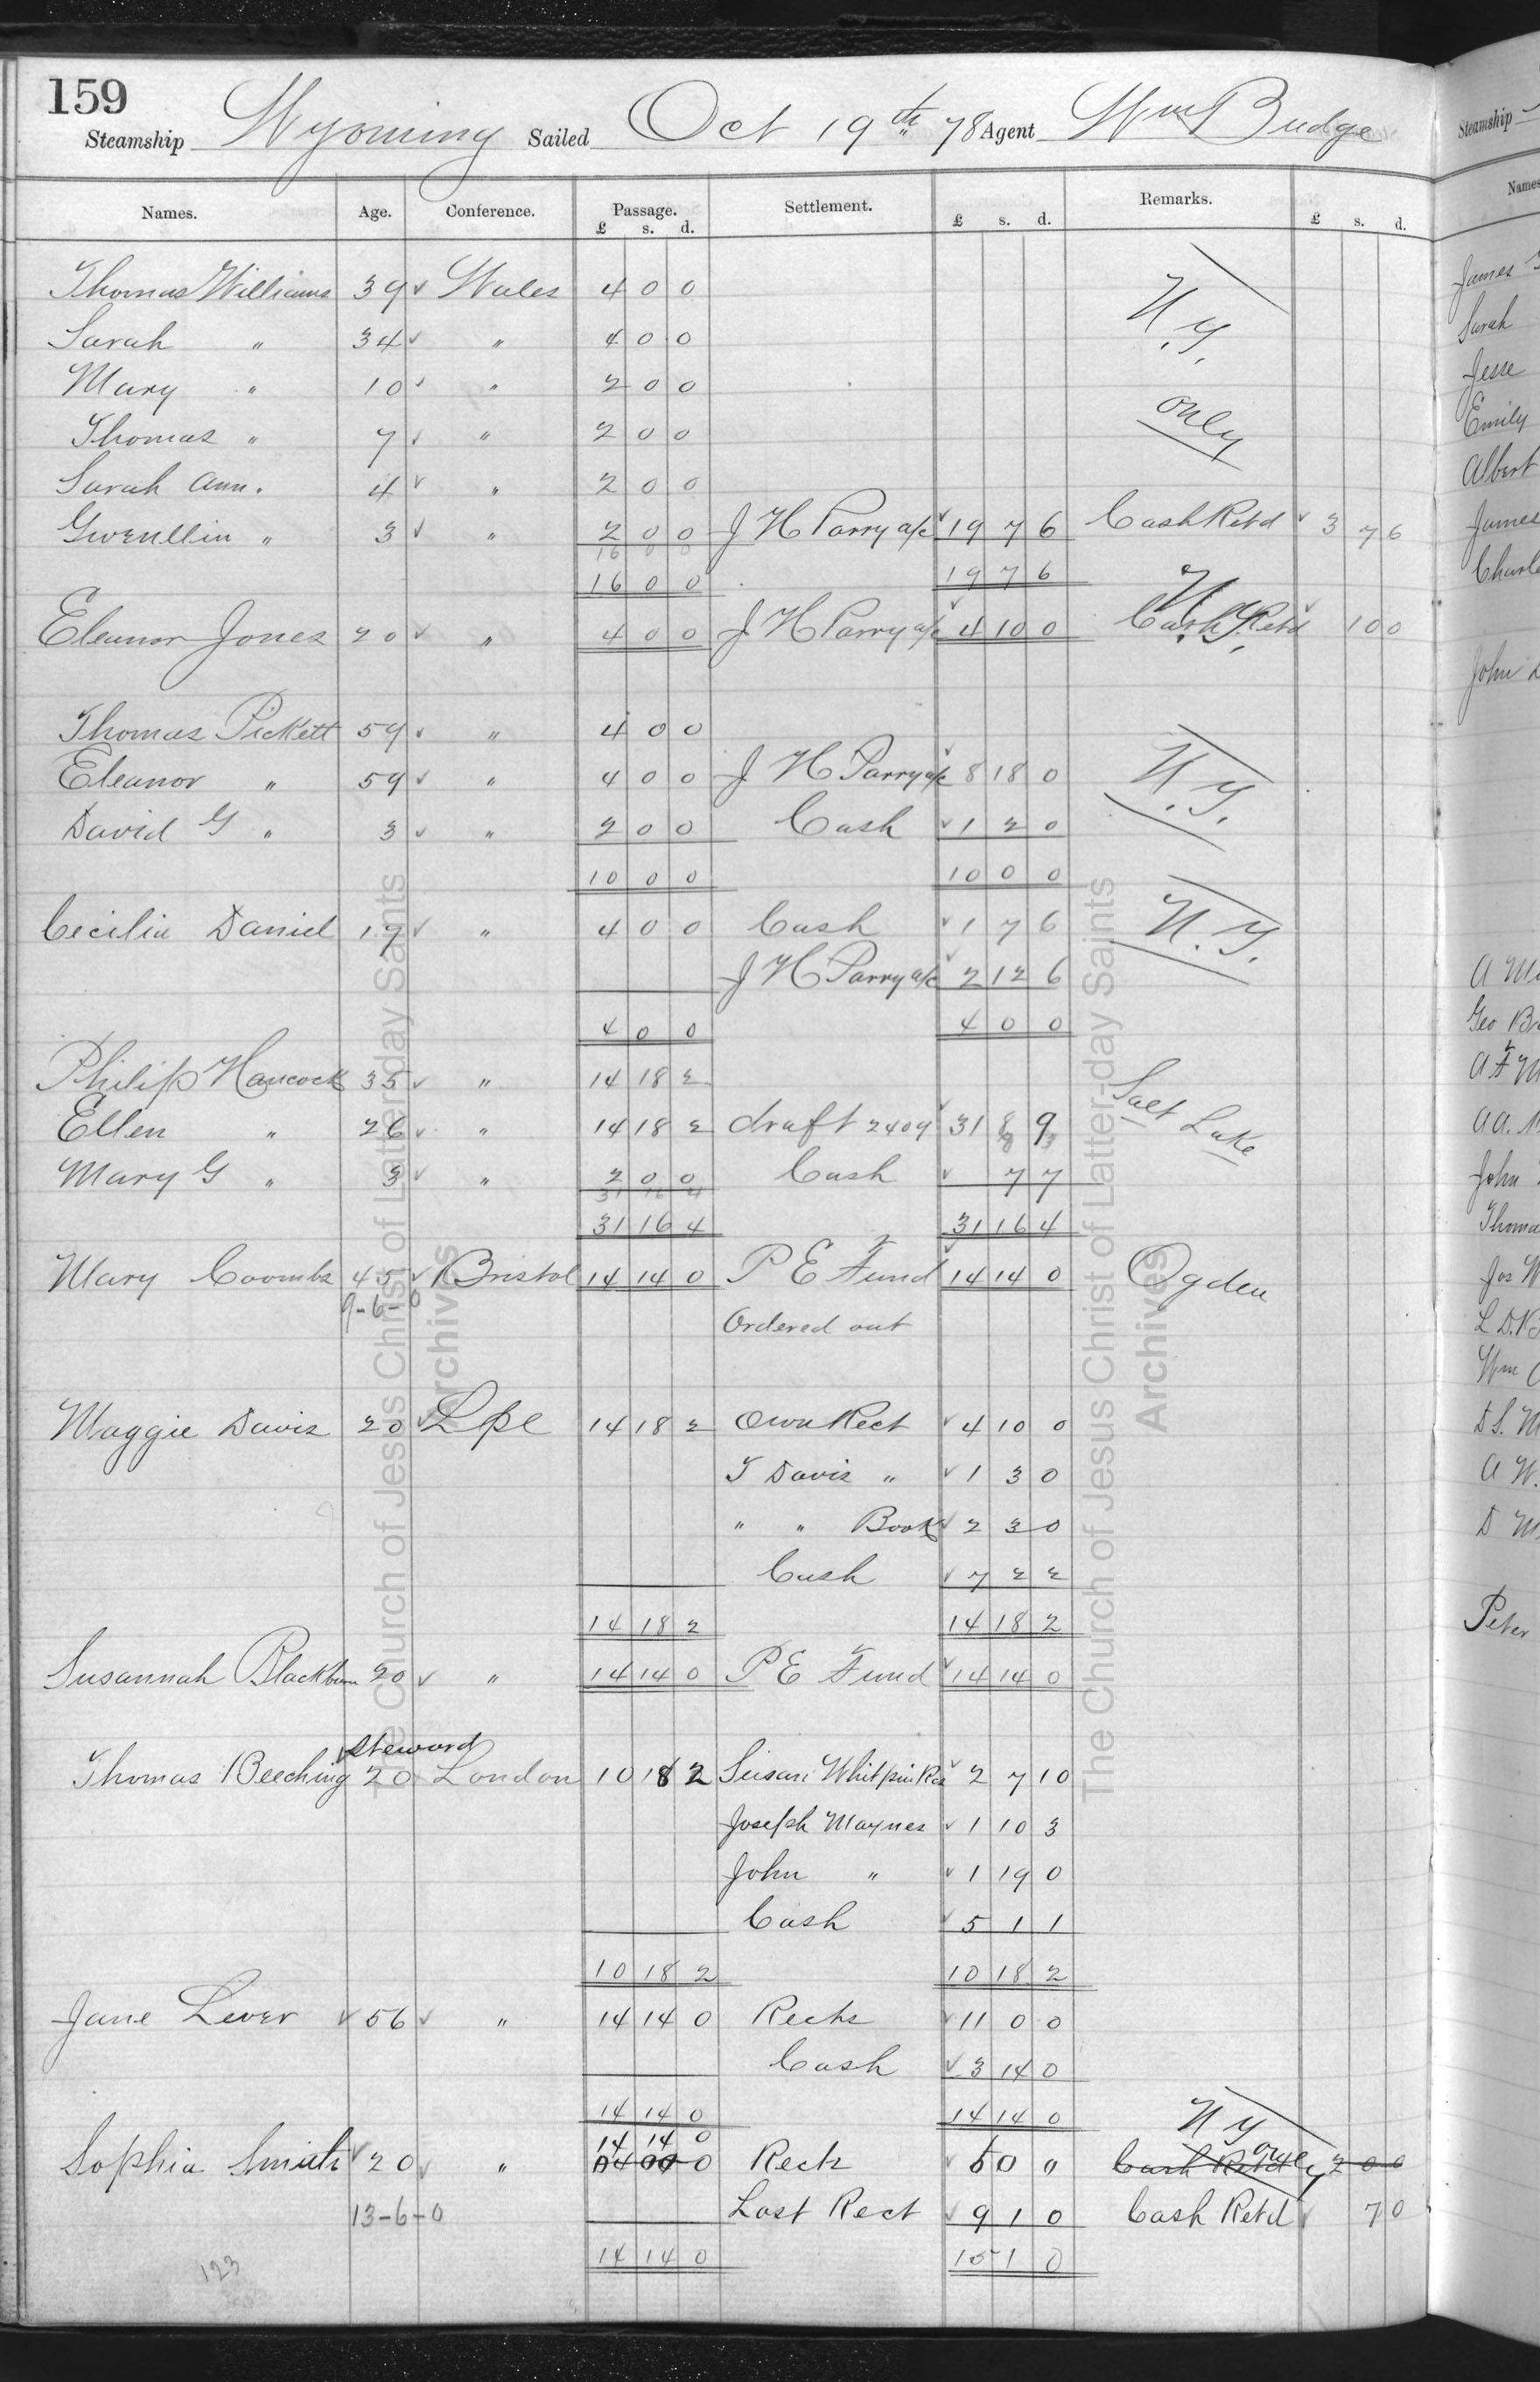 159
Steamship Wyoming Sailed Oct 19th 78 Agent Wm Budge
Names. Age. Conference. Passage. £ s. d. Settlement. £ s. d. Remarks. £ s. d.
Thomas Williams 39 Wales 4 0 0 N.Y.
Sarah " 34 " 4 0 0
Mary " 10 " 2 0 0 only
Thomas " 7 " 2 0 0
Sarah Ann. 4 " 2 0 0
Gwenllin " 3 " 2 0 0 J H Parry a/c 19 7 6 Cash Retd 3 7 6
16 0 0
16 0 0 19 7 6
Eleanor Jones 20 " 4 0 0 J H Parry a/c 4 10 0 N.Y. Cash Retd 10 0
Thomas Pickett 59 " 4 0 0
Eleanor " 59 " 4 0 0 J H Parry a/c 8 18 0 N.Y.
David G " 3 " 2 0 0 Cash 1 2 0
10 0 0 10 0 0
Cecilia Daniel 19 " 4 0 0 Cash 1 7 6 N.Y.
J H Parry a/c 2 12 6
4 0 0 4 0 0
Philip Hancock 35 " 14 18 2 Salt Lake
Ellen " 26 " 14 18 2 draft 2409 31 8 9
Mary G " 3 " 2 0 0 Cash 7 7
31 16 4
31 16 4 31 16 4
Mary Coombs 45 Bristol 14 14 0 P E Fund 14 14 0 Ogden
9-6-0 Ordered out
Maggie Davis 20 Lpl 14 18 2 Own Rect 4 10 0
T Davis " 1 3 0
" " Book 2 3 0
Cash 7 2 2
14 18 2 14 18 2
Susannah Blackburn 20 " 14 14 0 P E Fund 14 14 0
Steward
Thomas Beeching 20 London 10 18 2 Susan Whitpin 2 7 10
Joseph Maynes 1 10 3
John " 1 19 0
Cash 5 1 1
10 18 2 10 18 2
Jane Lever 56 " 14 14 0 Rects 11 0 0
Cash 3 14 0
14 14 0 14 14 0 N Y
14 14 0
Sophia Smith 20 " 0 Rects 6 0 0 only Cash Retd 2 0 0
13-6-0 Lost Rect 9 1 0 Cash Retd 7 0
14 14 0 15 1 0
123
The Church of Jesus Christ of Latter-day Saints
Archives
The Church of Jesus Christ of Latter-day Saints
Archives
Steamship
Names
James
Sarah
Jesse
Emily
Albert
James
John
Geo
John
Wm
Peter